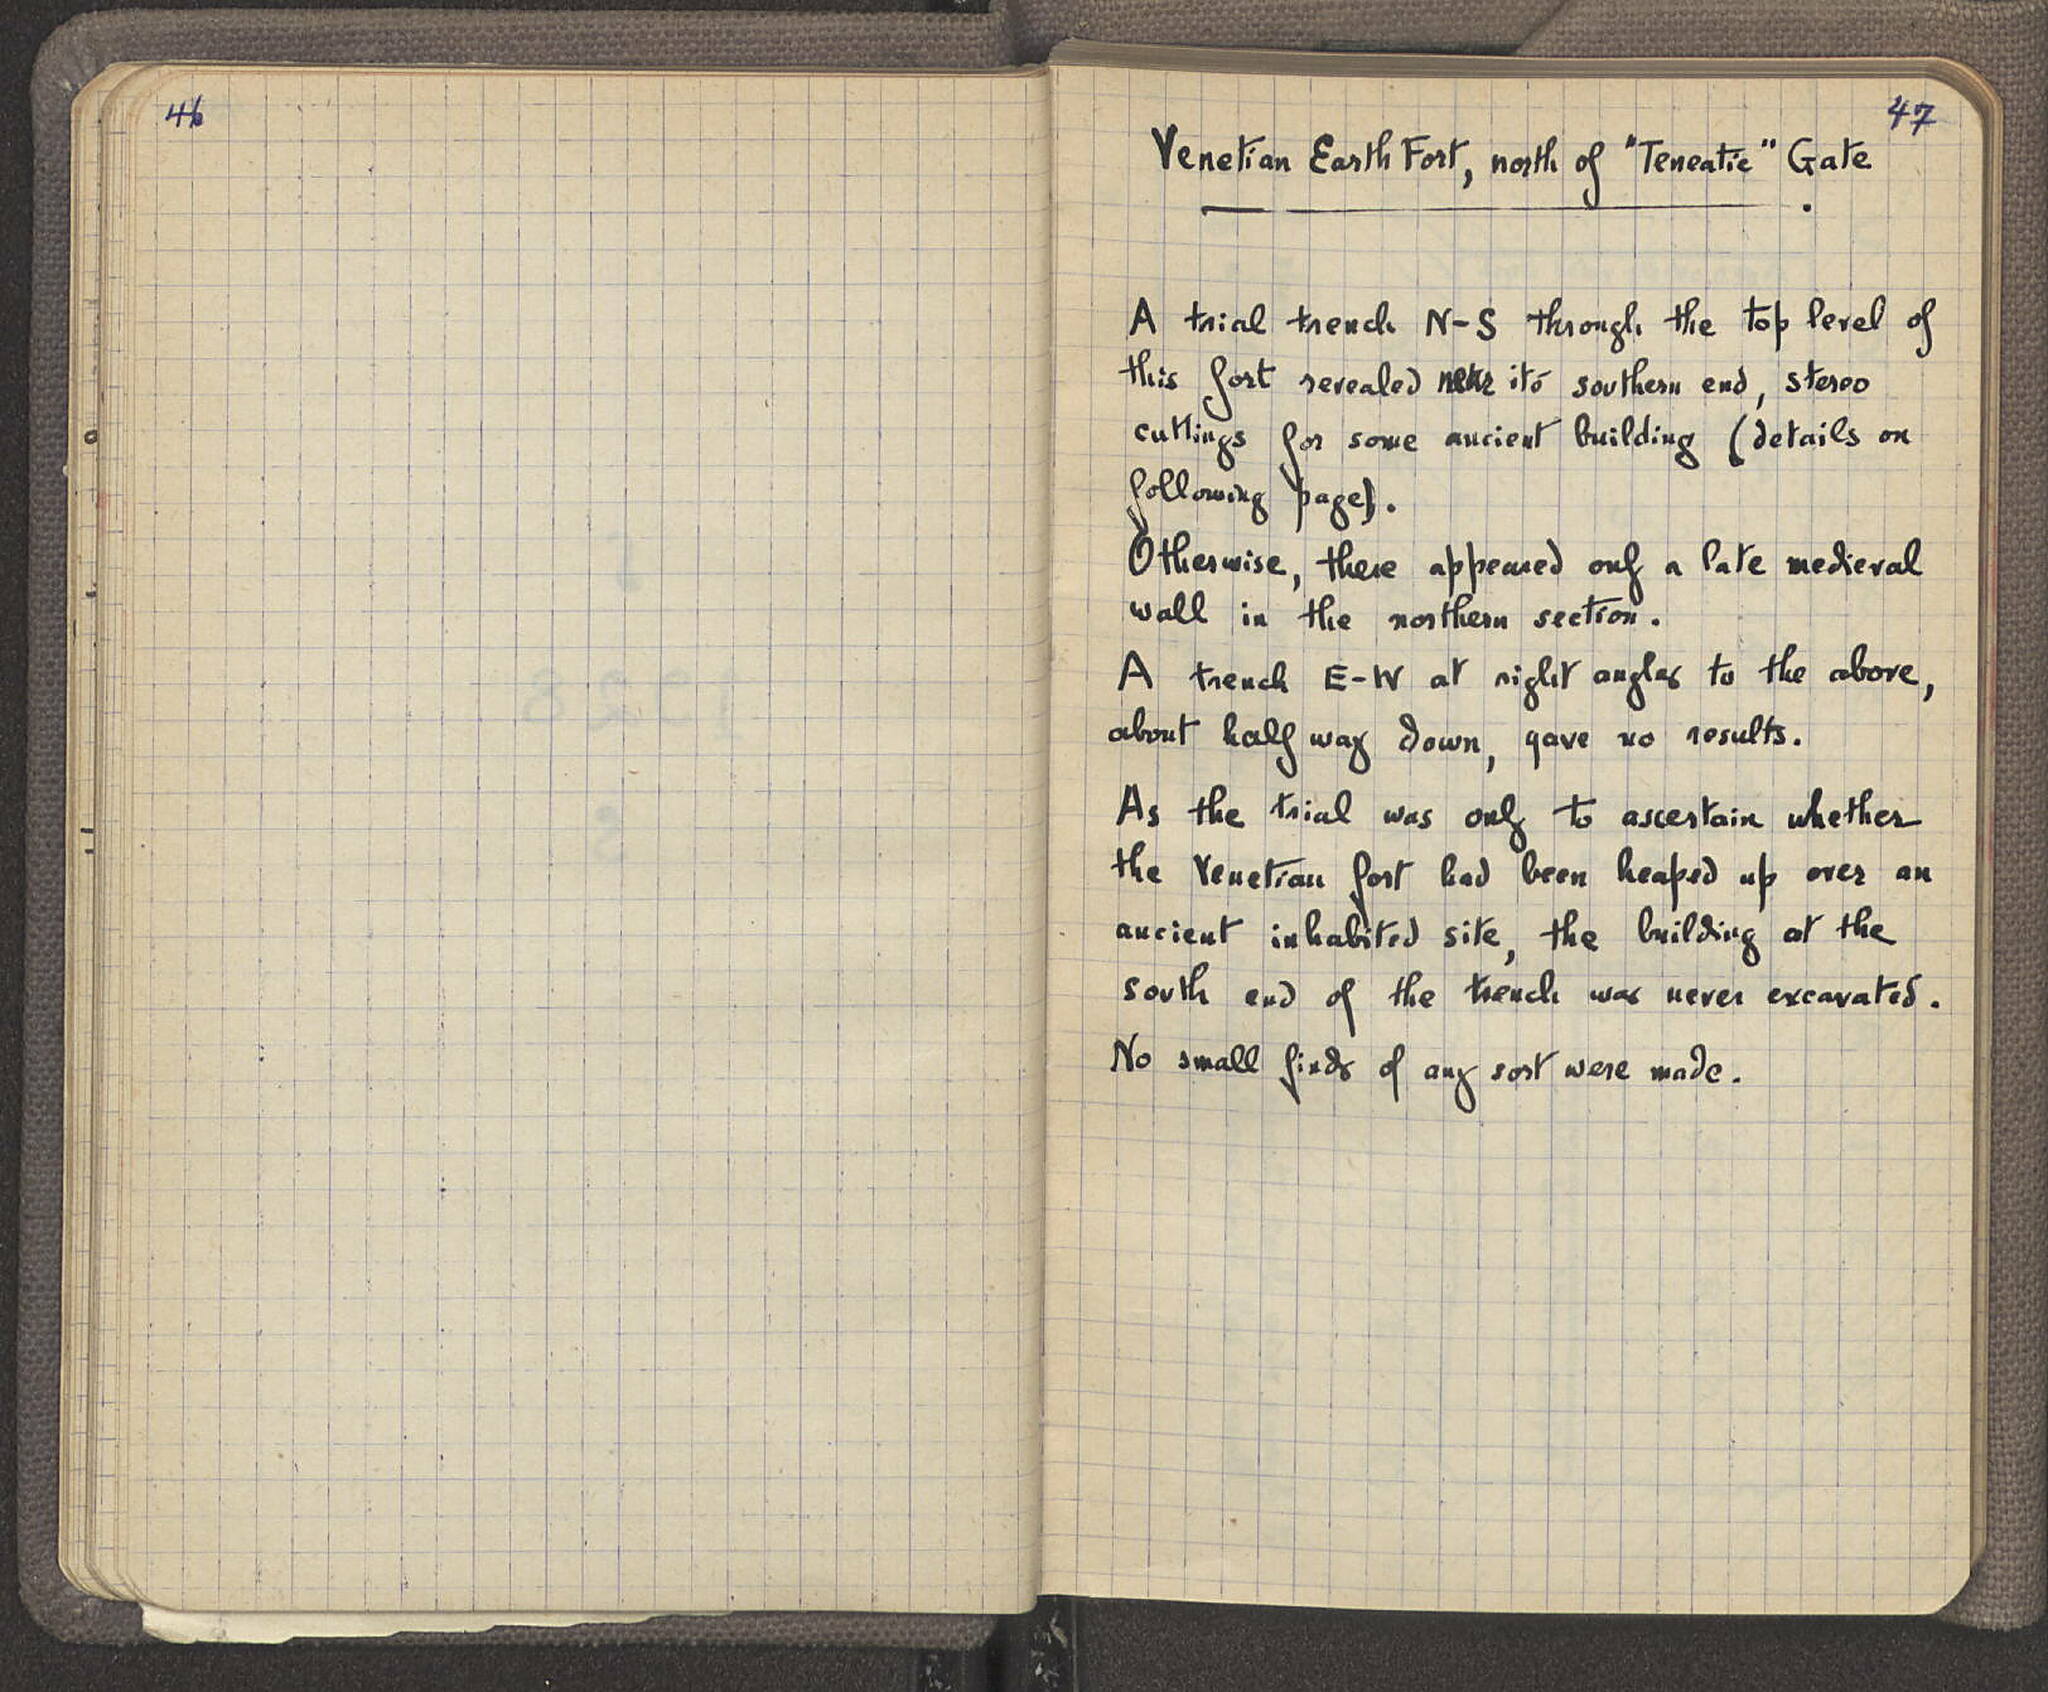 46
47
Venetian Earth Fort, north of "Teneatic" Gate
A trial trench N-S through the top level of
this fort revealed near its southern end, stereo
cuttings for some ancient building (details on
following page).
Otherwise, there appeared only a late medieval
wall in the northern section.
A trench E-W at right angles to the above,
about half way down, gave no results.
As the trial was only to ascertain whether
the Venetian fort had been heaped up over an
ancient inhabited site, the building at the
south end of the trench was never excavated.
No small finds of any sort were made.